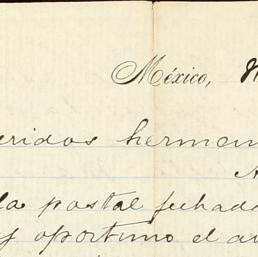 México,
eridos herman
la postal fechada
y oportuno el au